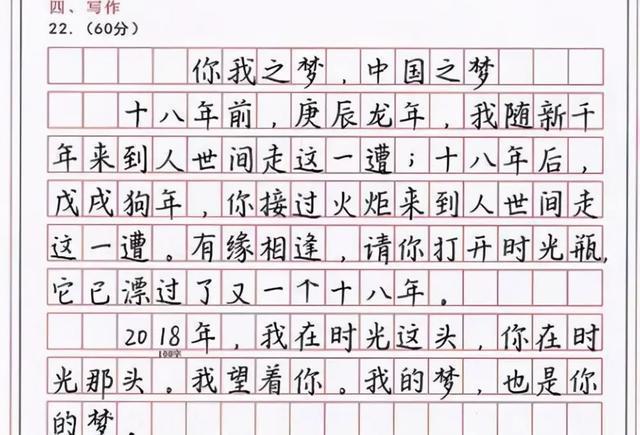 四、写作
22.（60分）
你我之梦，中国之梦
十八年前，庚辰龙年，我随新千
年来到人世间走这一遭；十八年后，
戊戌狗年，你接过火炬来到人世间走
这一遭。有缘相逢，请你打开时光瓶，
它已漂过了又一个十八年。
2018年，我在时光这头，你在时
100字
光那头。我望着你。我的梦，也是你
的梦。